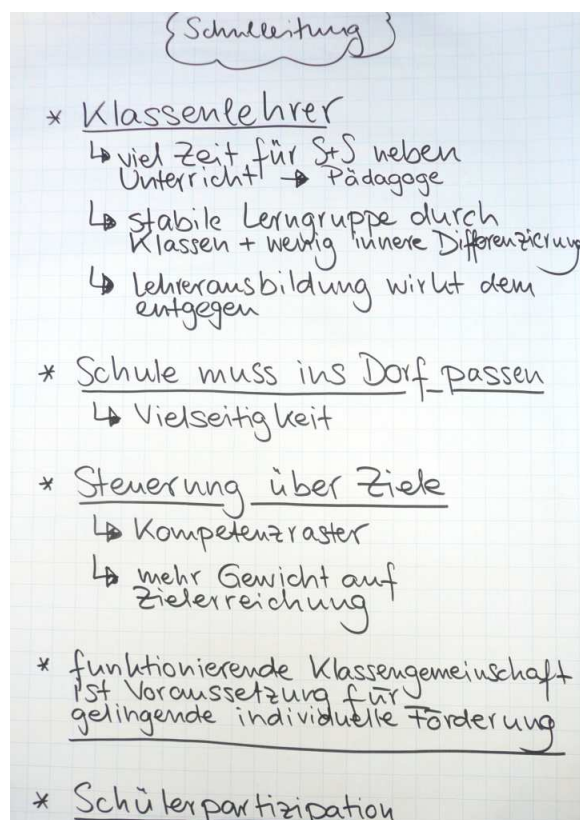 Schulleitung
* Klassenlehrer
↳ viel Zeit für S+S neben
Unterricht → Pädagoge
↳ stabile Lerngruppe durch
Klassen + wenig innere Differenzierung
↳ Lehrerausbildung wirkt dem
entgegen
* Schule muss ins Dorf passen
↳ Vielseitigkeit
* Steuerung über Ziele
↳ Kompetenzraster
↳ mehr Gewicht auf
Zielerreichung
* funktionierende Klassengemeinschaft
ist Voraussetzung für
gelingende individuelle Förderung
* Schülerpartizipation